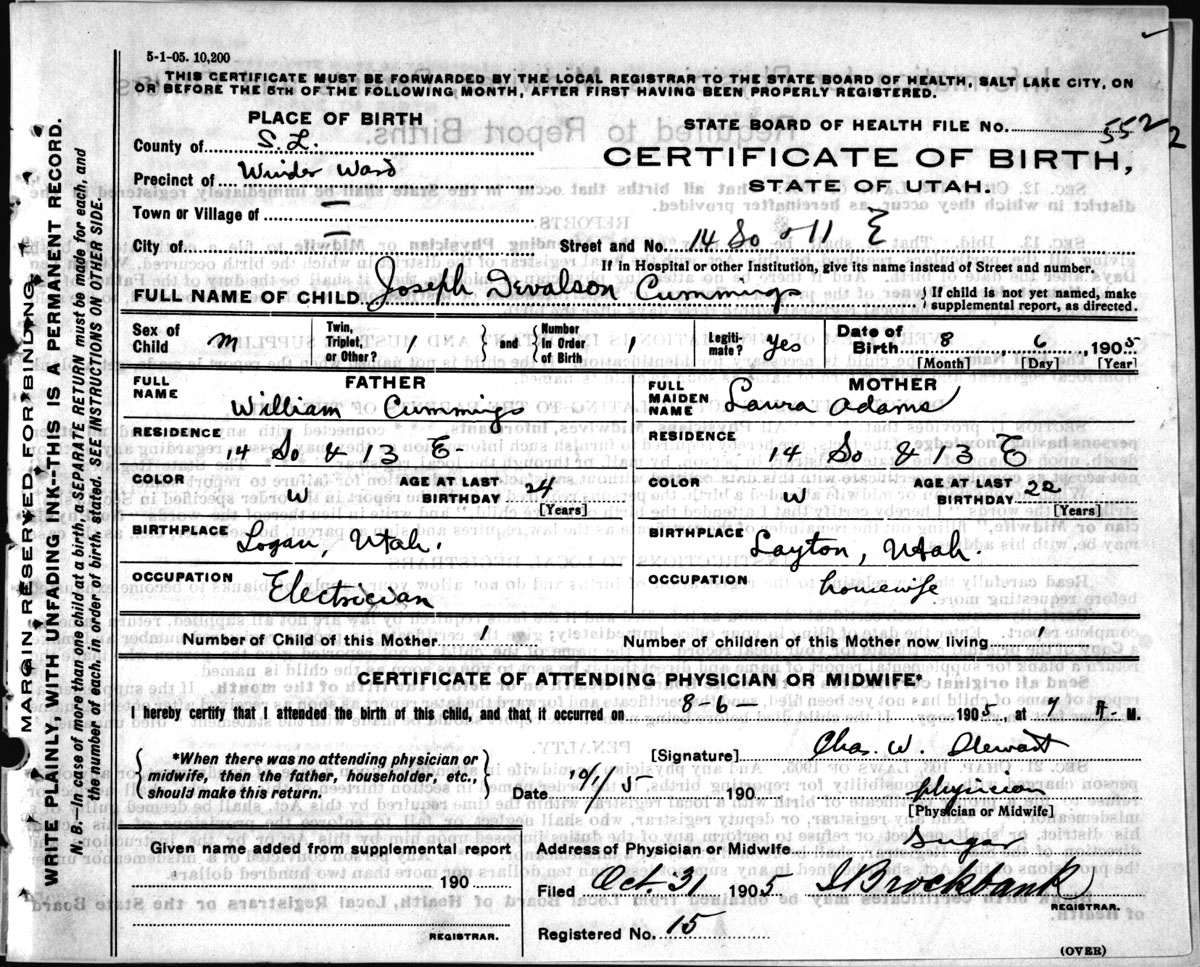 5-1-05. 10,200
THIS CERTIFICATE MUST BE FORWARDED BY THE LOCAL REGISTRAR TO THE STATE BOARD OF HEALTH, SALT LAKE CITY, ON
OR BEFORE THE 5TH OF THE FOLLOWING MONTH, AFTER FIRST HAVING BEEN PROPERLY REGISTERED.
PLACE OF BIRTH
STATE BOARD OF HEALTH FILE NO. 552
2
County of S. L.
CERTIFICATE OF BIRTH,
Precinct of Winder Ward
STATE OF UTAH.
Town or Village of —
City of —
Street and No. 14 So & 11 E
If in Hospital or other Institution, give its name instead of Street and number.
FULL NAME OF CHILD Joseph Devalson Cummings { If child is not yet named, make supplemental report, as directed.
Sex of Child M
Twin, Triplet, or Other? 1 } and { Number In Order of Birth 1
Legitimate? Yes
Date of Birth 8 6 1905
[Month] [Day] [Year]
FATHER
FULL NAME William Cummings
RESIDENCE
14 So & 13 E
COLOR W AGE AT LAST BIRTHDAY 24
[Years]
BIRTHPLACE
Logan, Utah.
OCCUPATION Electrician
MOTHER
FULL MAIDEN NAME Laura Adams
RESIDENCE
14 So & 13 E
COLOR W AGE AT LAST BIRTHDAY 22
[Years]
BIRTHPLACE
Layton, Utah.
OCCUPATION housewife
Number of Child of this Mother 1 Number of children of this Mother now living 1
CERTIFICATE OF ATTENDING PHYSICIAN OR MIDWIFE*
I hereby certify that I attended the birth of this child, and that it occurred on 8-6- 1905, at 7 A- M.
{ *When there was no attending physician or
midwife, then the father, householder, etc.,
should make this return. }
[Signature] Chas. W. Stewart
Date 10/1/5 190 physician
[Physician or Midwife]
Given name added from supplemental report
190
REGISTRAR.
Address of Physician or Midwife Sugar
Filed Oct. 31 1905 Brockbank
REGISTRAR.
Registered No. 15
(OVER)
MARGIN RESERVED FOR BINDING.
WRITE PLAINLY, WITH UNFADING INK--THIS IS A PERMANENT RECORD.
N. B.—In case of more than one child at a birth, a SEPARATE RETURN must be made for each, and
the number of each, in order of birth, stated. SEE INSTRUCTIONS ON OTHER SIDE.